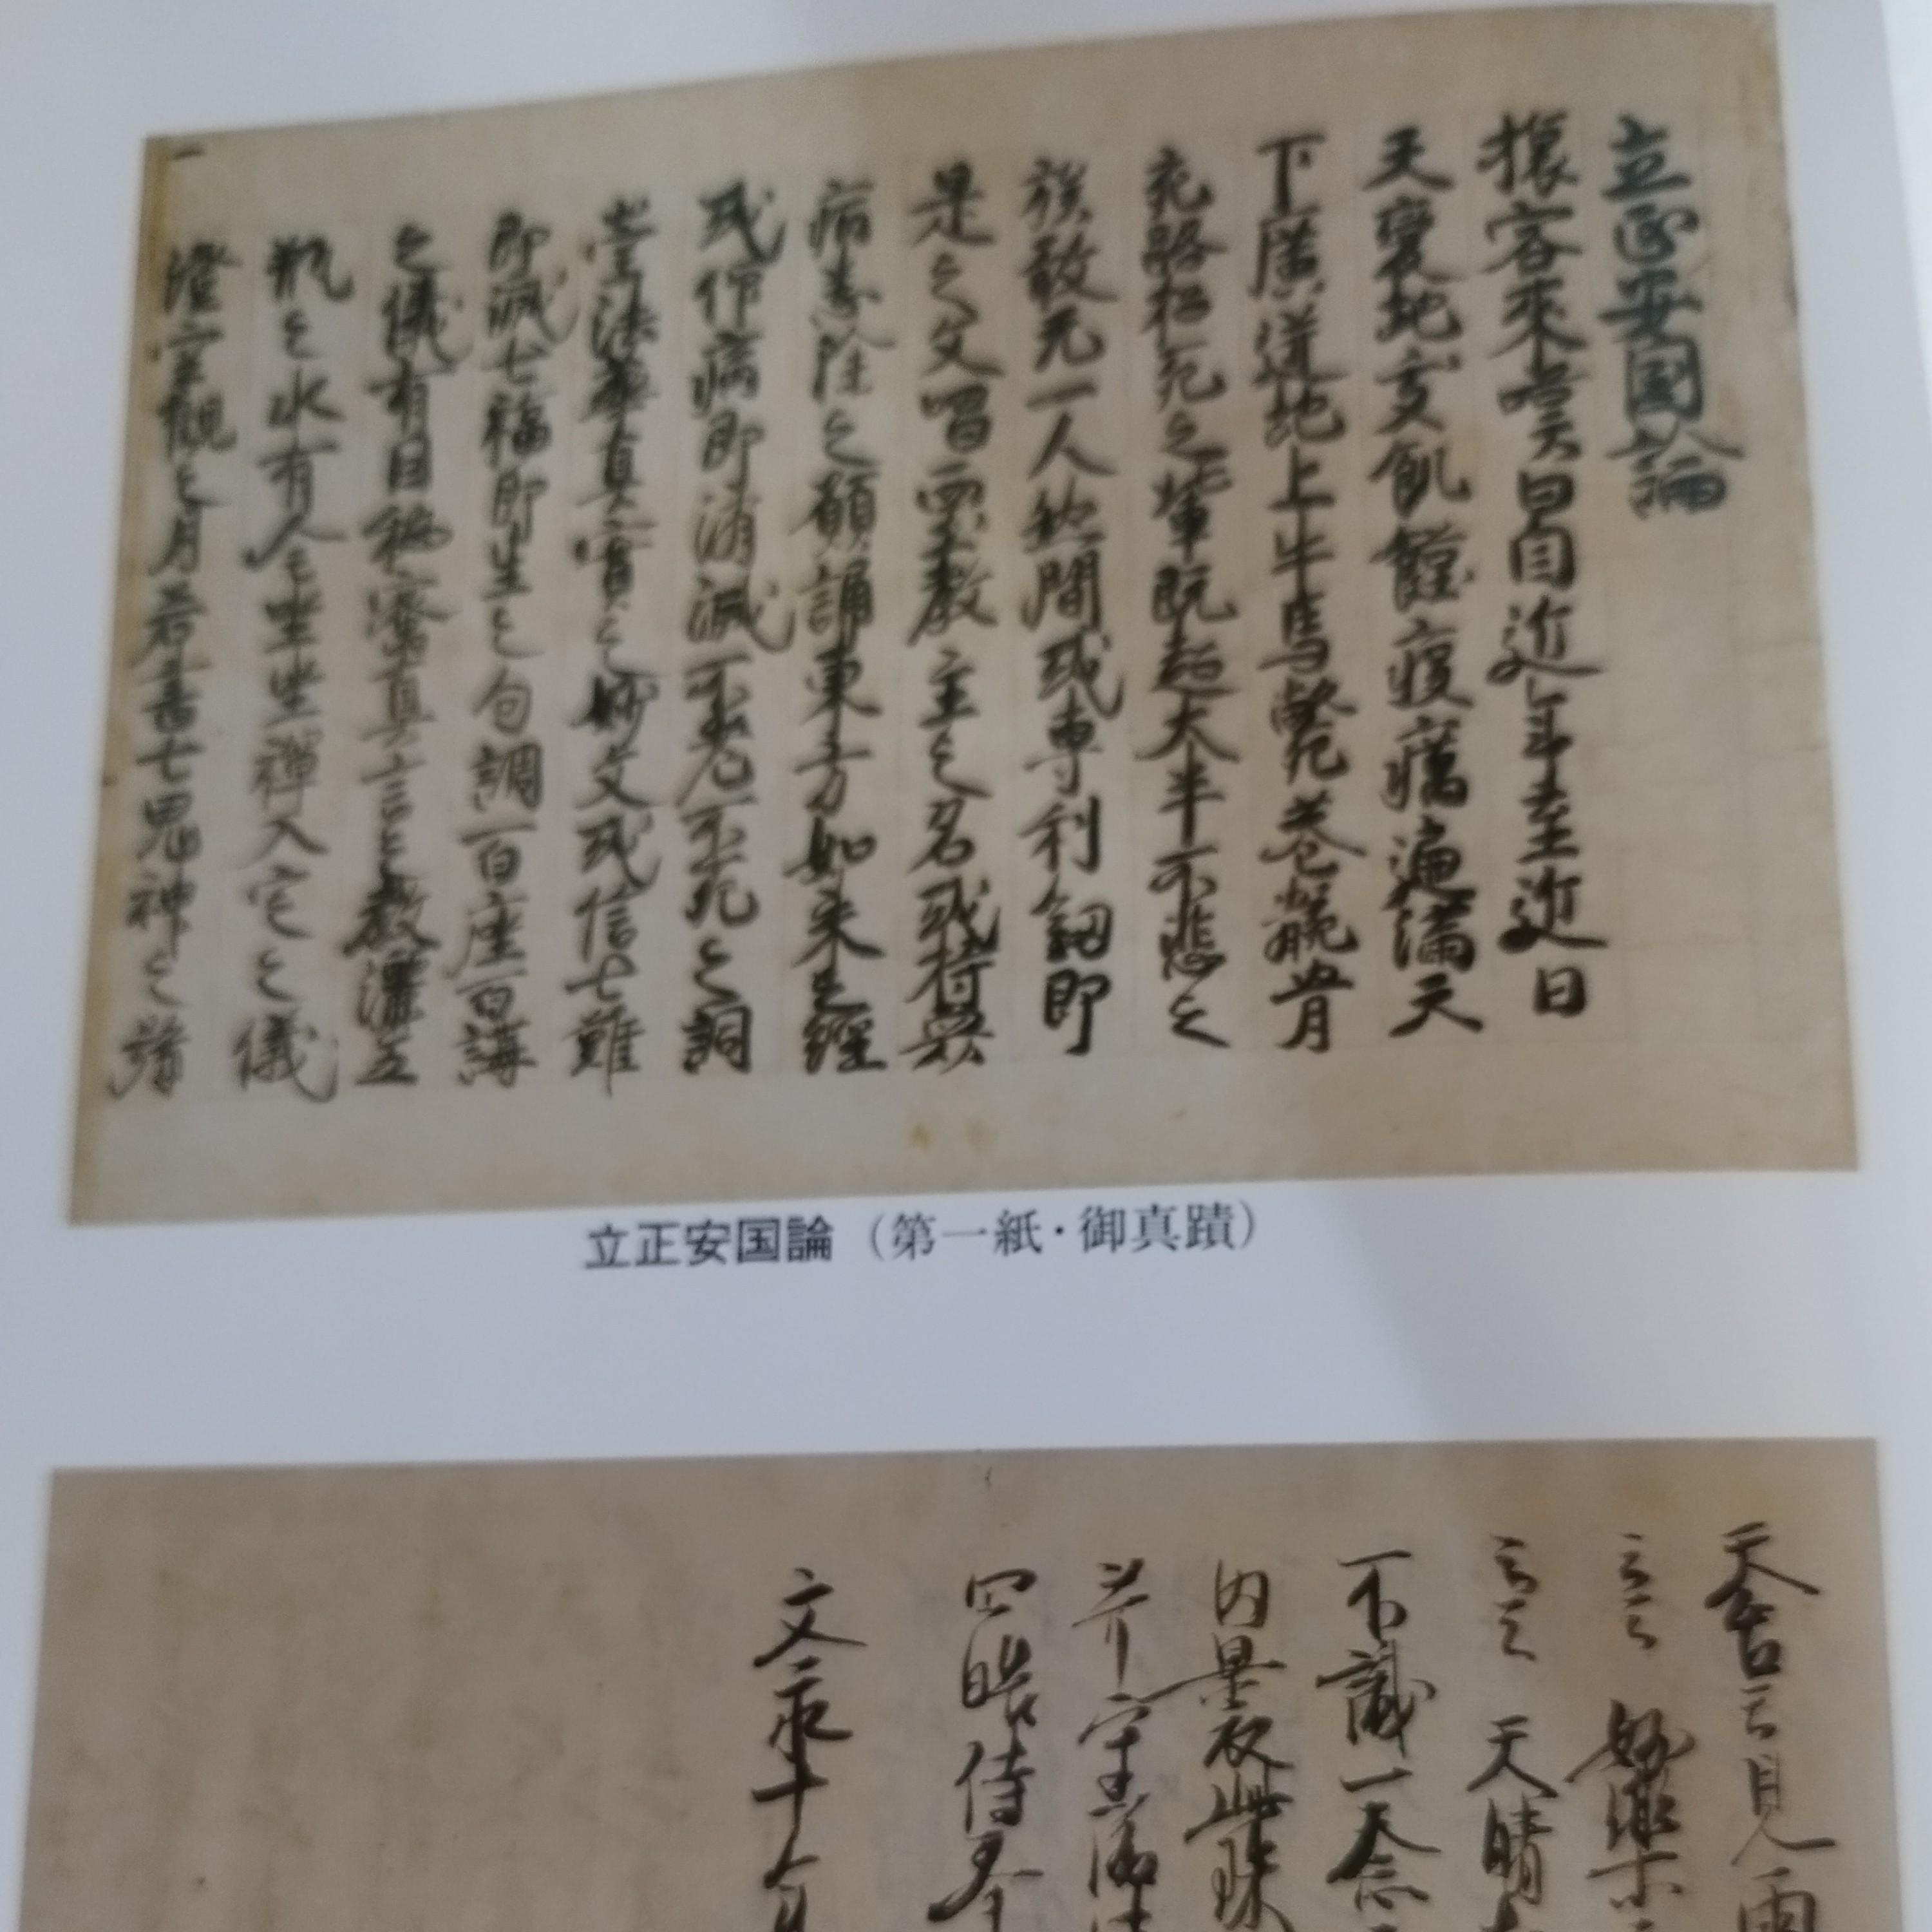 立正安国論
旅客來嘆曰自近年至近日
天變地夭飢饉疫癘遍滿天
下廣迸地上牛馬斃巷骸骨
充路招死之輩既超大半不悲之
族敢无一人然間或專利劔即
是之文唱西土教主之名或持衆
病悉除之願誦東方如來之經
或仰病即消滅不老不死之詞
崇法華真實之妙文或信七難
即滅七福即生之句調百座百講
之儀有因秘密真言之教灑五
瓶之水有全坐禪入定之儀
澄空觀之月若書七鬼神之號
立正安国論（第一紙・御真蹟）
天台云 見雨
云云 妙樂
云云 天晴
不識一念
内裹此珠
四晧侍奉
文永十年